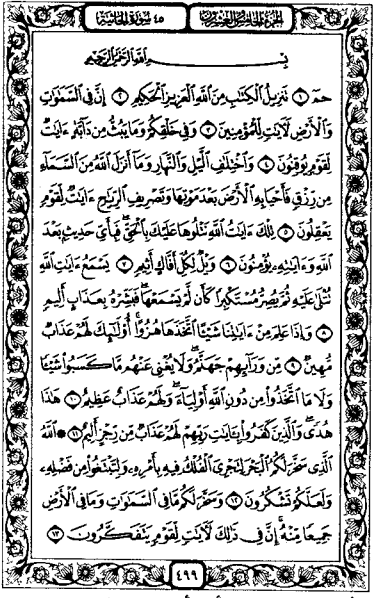 الجزء الخامس والعشرون
٤٥ سورة الجاثية
بِسْمِ ٱللَّهِ ٱلرَّحْمَٰنِ ٱلرَّحِيمِ
حمٓ ۝١ تَنزِيلُ ٱلْكِتَٰبِ مِنَ ٱللَّهِ ٱلْعَزِيزِ ٱلْحَكِيمِ ۝٢ إِنَّ فِى ٱلسَّمَٰوَٰتِ
وَٱلْأَرْضِ لَءَايَٰتٍ لِّلْمُؤْمِنِينَ ۝٣ وَفِى خَلْقِكُمْ وَمَا يَبُثُّ مِن دَآبَّةٍ ءَايَٰتٌ
لِّقَوْمٍ يُوقِنُونَ ۝٤ وَٱخْتِلَٰفِ ٱلَّيْلِ وَٱلنَّهَارِ وَمَآ أَنزَلَ ٱللَّهُ مِنَ ٱلسَّمَآءِ
مِن رِّزْقٍ فَأَحْيَا بِهِ ٱلْأَرْضَ بَعْدَ مَوْتِهَا وَتَصْرِيفِ ٱلرِّيَٰحِ ءَايَٰتٌ لِّقَوْمٍ
يَعْقِلُونَ ۝٥ تِلْكَ ءَايَٰتُ ٱللَّهِ نَتْلُوهَا عَلَيْكَ بِٱلْحَقِّ ۖ فَبِأَىِّ حَدِيثٍۭ بَعْدَ
ٱللَّهِ وَءَايَٰتِهِۦ يُؤْمِنُونَ ۝٦ وَيْلٌ لِّكُلِّ أَفَّاكٍ أَثِيمٍ ۝٧ يَسْمَعُ ءَايَٰتِ ٱللَّهِ
تُتْلَىٰ عَلَيْهِ ثُمَّ يُصِرُّ مُسْتَكْبِرًا كَأَن لَّمْ يَسْمَعْهَا ۖ فَبَشِّرْهُ بِعَذَابٍ أَلِيمٍ
۝٨ وَإِذَا عَلِمَ مِنْ ءَايَٰتِنَا شَيْـًٔا ٱتَّخَذَهَا هُزُوًا ۚ أُو۟لَٰٓئِكَ لَهُمْ عَذَابٌ
مُّهِينٌ ۝٩ مِّن وَرَآئِهِمْ جَهَنَّمُ ۖ وَلَا يُغْنِى عَنْهُم مَّا كَسَبُوا۟ شَيْـًٔا
وَلَا مَا ٱتَّخَذُوا۟ مِن دُونِ ٱللَّهِ أَوْلِيَآءَ ۖ وَلَهُمْ عَذَابٌ عَظِيمٌ ۝١٠ هَٰذَا
هُدًى ۖ وَٱلَّذِينَ كَفَرُوا۟ بِـَٔايَٰتِ رَبِّهِمْ لَهُمْ عَذَابٌ مِّن رِّجْزٍ أَلِيمٌ ۝١١ ۞ ٱللَّهُ
ٱلَّذِى سَخَّرَ لَكُمُ ٱلْبَحْرَ لِتَجْرِىَ ٱلْفُلْكُ فِيهِ بِأَمْرِهِۦ وَلِتَبْتَغُوا۟ مِن فَضْلِهِۦ
وَلَعَلَّكُمْ تَشْكُرُونَ ۝١٢ وَسَخَّرَ لَكُم مَّا فِى ٱلسَّمَٰوَٰتِ وَمَا فِى ٱلْأَرْضِ
جَمِيعًا مِّنْهُ ۚ إِنَّ فِى ذَٰلِكَ لَءَايَٰتٍ لِّقَوْمٍ يَتَفَكَّرُونَ ۝١٣
٤٩٩